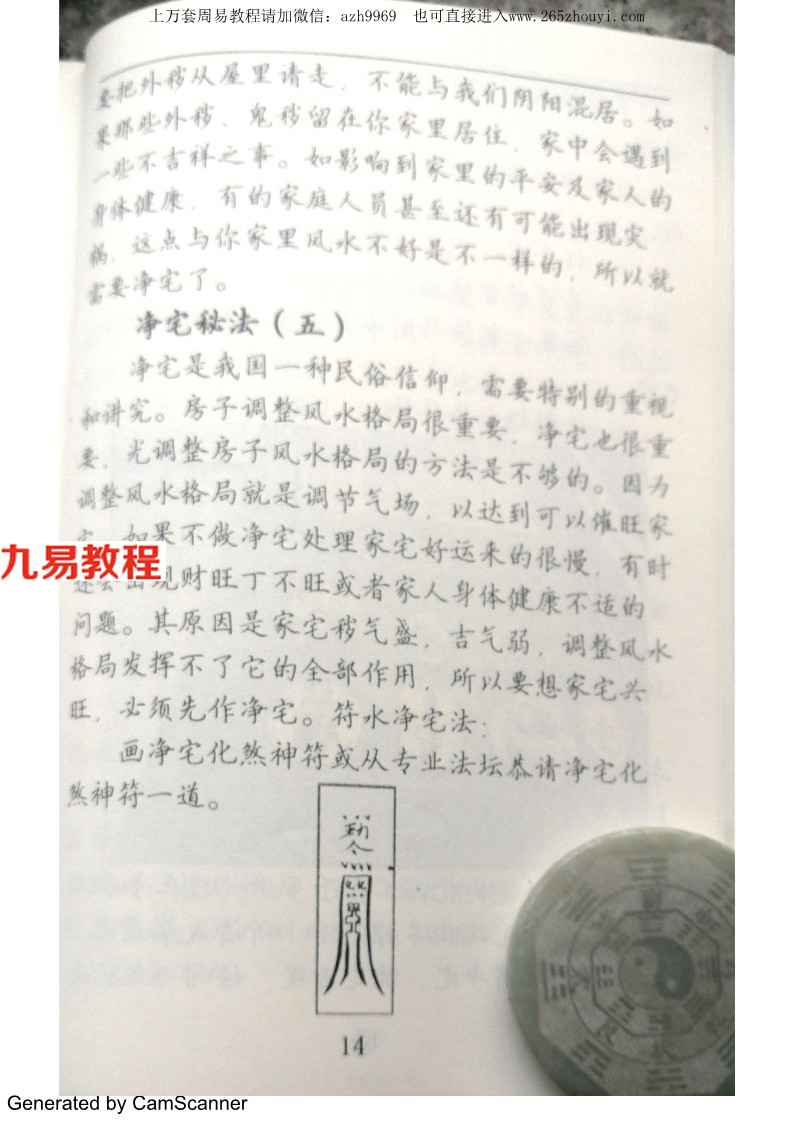 上万套周易教程请加微信：azh9969　也可直接进入www.265zhouyi.com
要把外秽从屋里请走，不能与我们阴阳混居。如
果那些外秽、鬼秽留在你家里居住，家中会遇到
一些不吉祥之事。如影响到家里的平安及家人的
身体健康，有的家庭人员甚至还有可能出现灾
祸，这点与你家里风水不好是不一样的，所以就
需要净宅了。
净宅秘法（五）
净宅是我国一种民俗信仰，需要特别的重视
和讲究。房子调整风水格局很重要，净宅也很重
要，光调整房子风水格局的方法是不够的。因为
调整风水格局就是调节气场，以达到可以催旺家
如果不做净宅处理家宅好运来的很慢，有时
九易教程
现财旺丁不旺或者家人身体健康不适的
问题。其原因是家宅秽气盛，吉气弱，调整风水
格局发挥不了它的全部作用，所以要想家宅头
旺，必须先作净宅。符水净宅法：
画净宅化煞神符或从专业法坛恭请净宅化
煞神符一道。
14
Generated by CamScanner